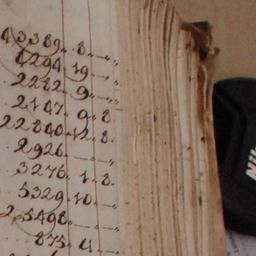 13389. 8. — "
1294. 19. — "
2282. 9. — "
2147. 9. 8.
22840. 12. 8.
2926. — "
3276. 1. 8.
5329. 10. — "
25498. — "
875. 4. — "
Ni